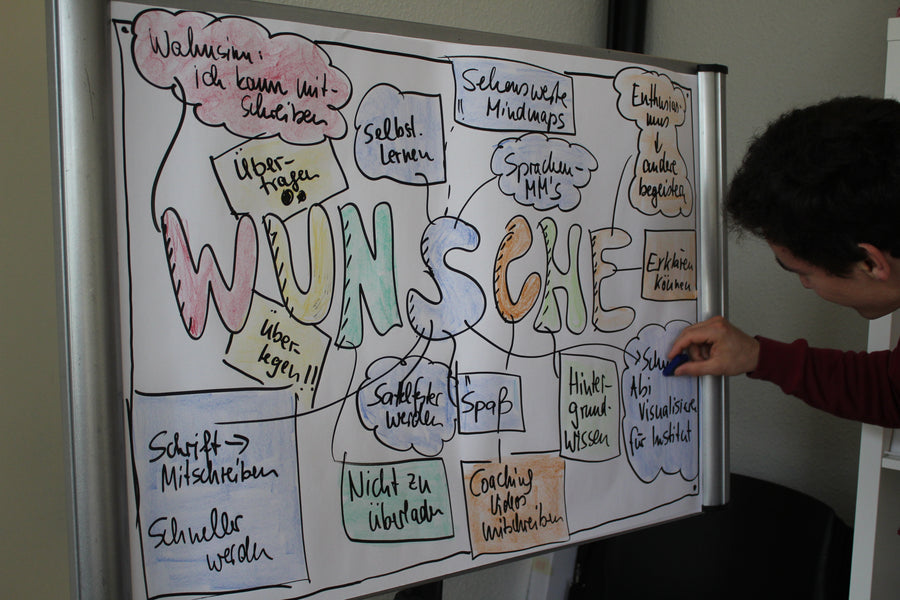 Wahnsinn:
ich kann mit-
schreiben
Über-
tragen
Selbst.
lernen
Sehenswerte
Mindmaps
Sprachen-
MM's
Enthusias-
mus
↓
andere
begeistern
WUNSCHE
Erklären
können
Über-
legen!!
werden
Spaß
Hinter-
grund-
wissen
Abi
Visualisieren
für Institut
Schrift →
Mitschreiben
Schneller
werden
Nicht zu
überladen
Coaching
Videos
mitschreiben